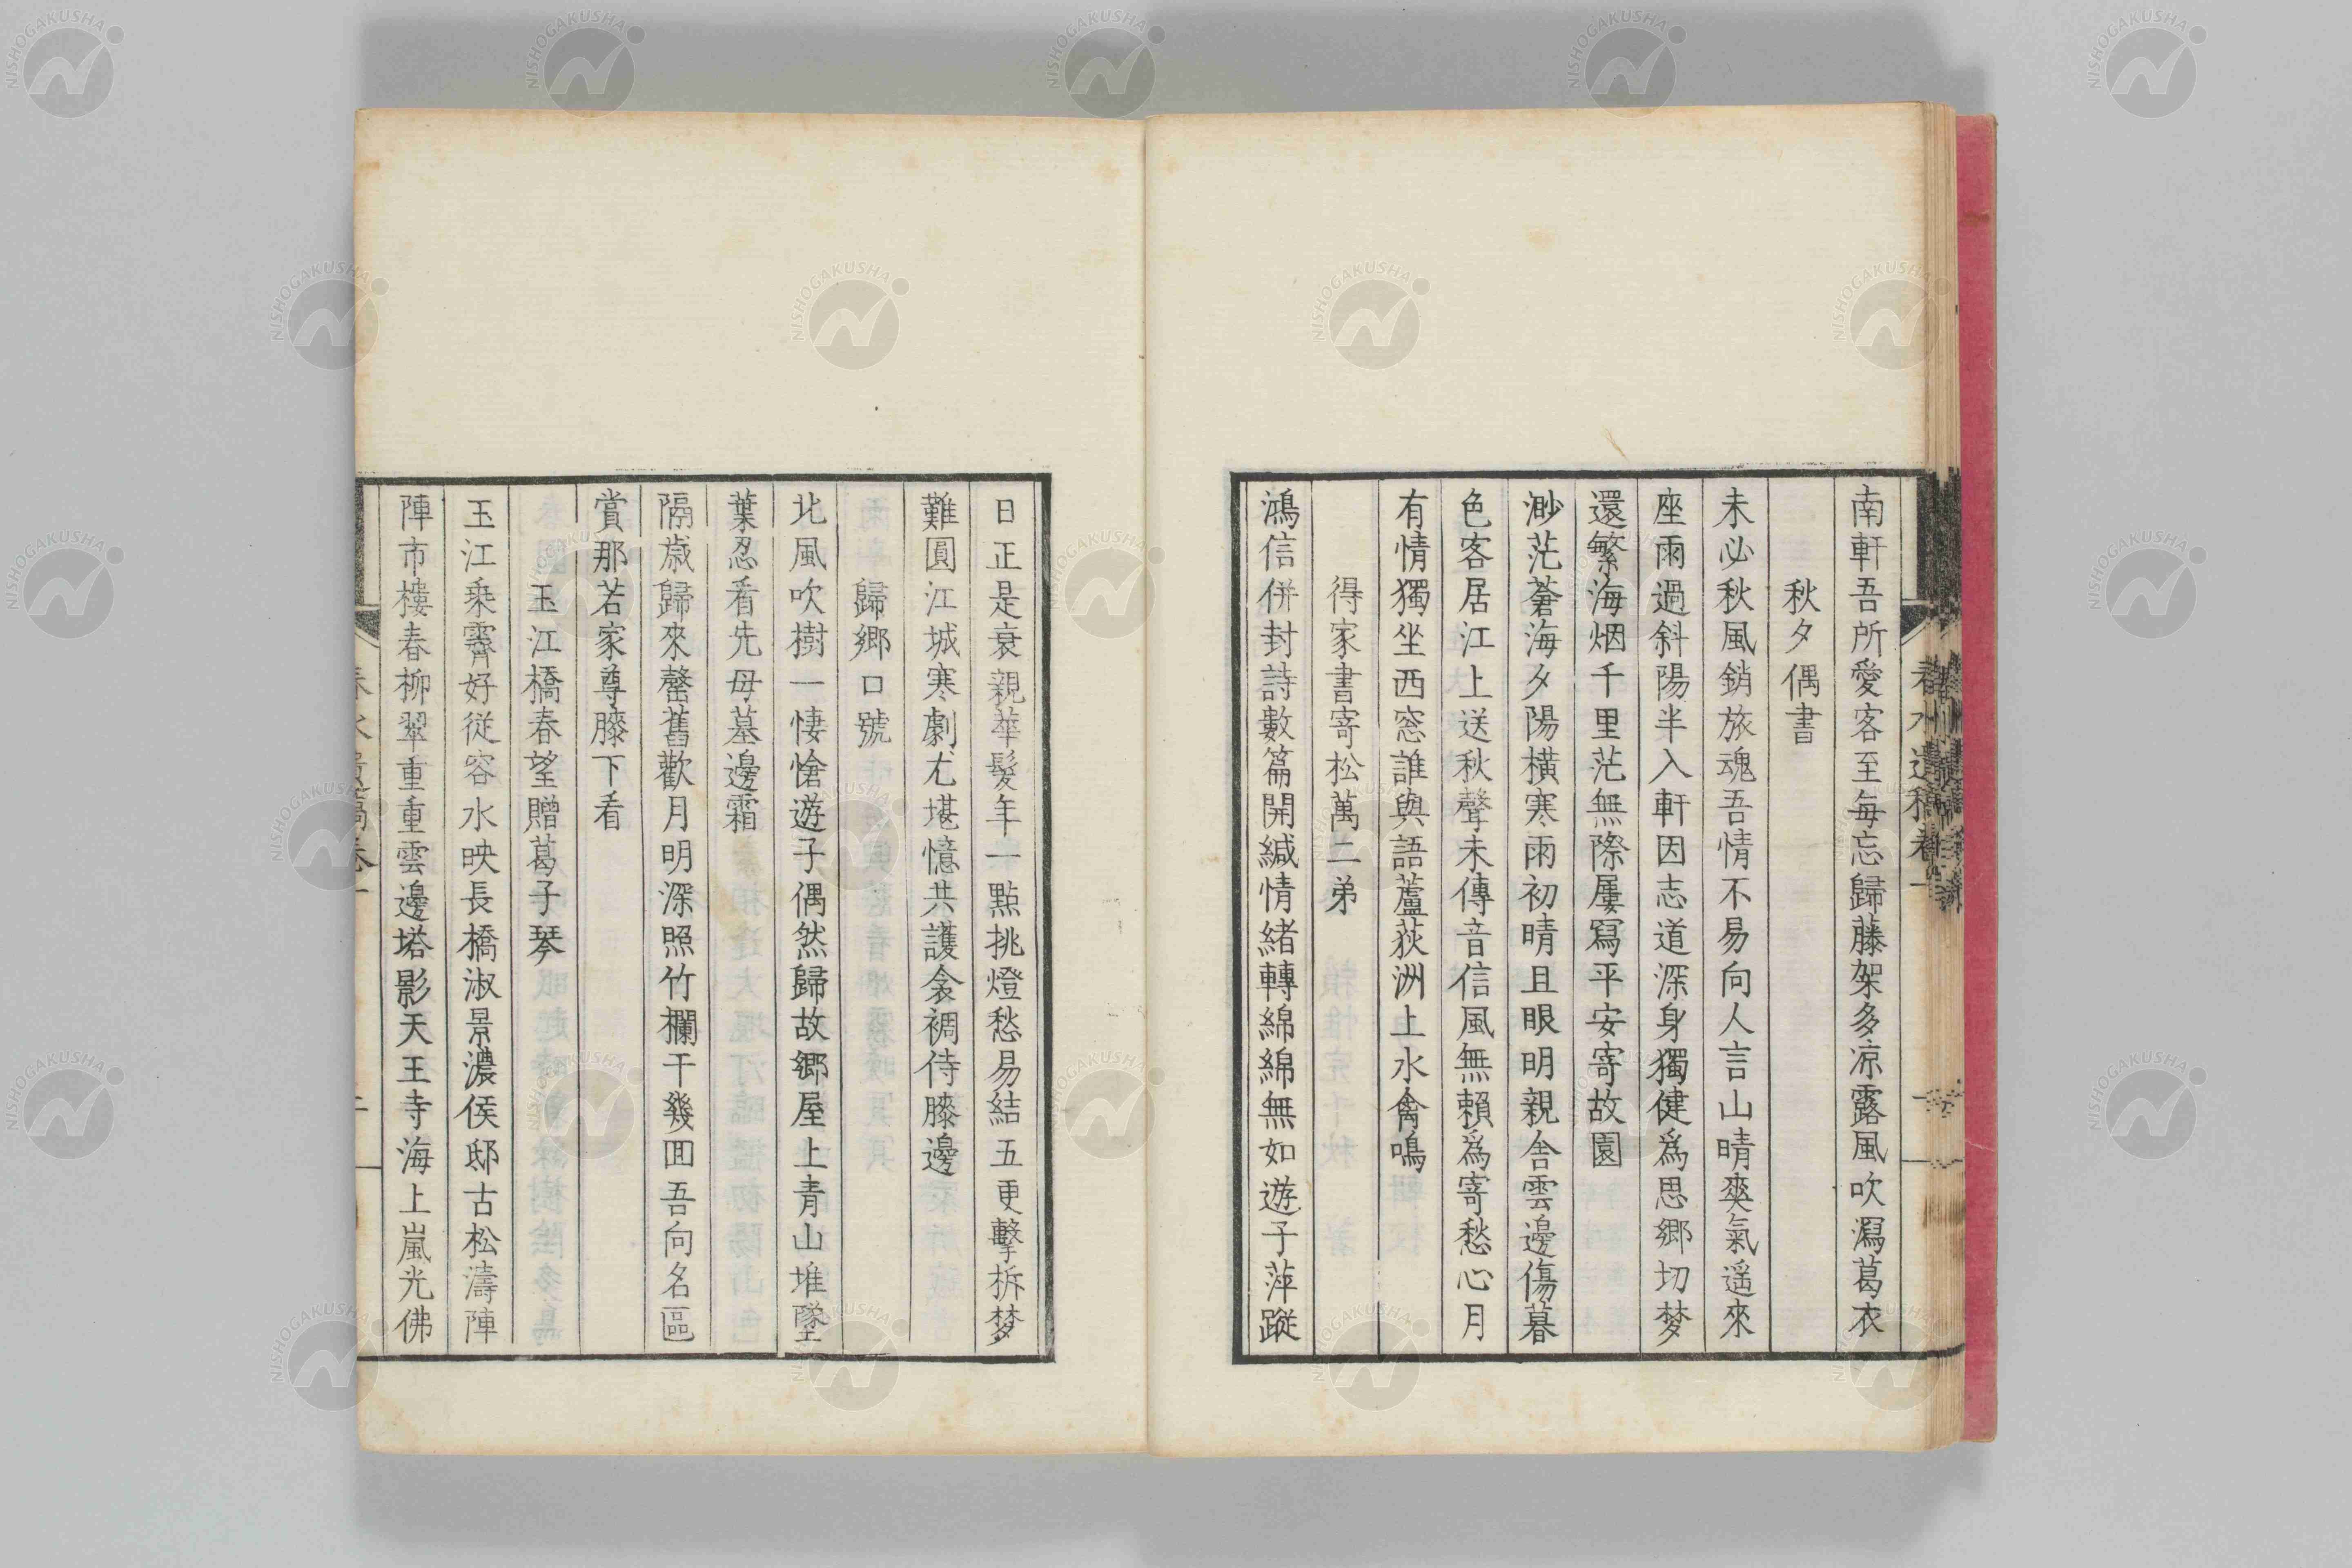 南軒吾所愛客至每忘歸藤架多凉露風吹瀉葛衣
秋夕偶書
未必秋風銷旅魂吾情不易向人言山晴爽氣遥來
座雨過斜陽半入軒因志道深身獨健爲思郷切梦
還繁海烟千里茫無際屢寫平安寄故園
渺茫蒼海夕陽橫寒雨初晴且眼明親舍雲邊傷暮
色客居江上送秋聲未傳音信風無賴爲寄愁心月
有情獨坐西窓誰與語蘆荻洲上水禽鳴
得家書寄松萬二弟
鴻信併封詩數篇開緘情緒轉綿綿無如遊子萍蹤
日正是衰親華髮年一點挑燈愁易結五更擊柝梦
難圓江城寒劇尤堪憶共護衾裯侍膝邊
歸郷口號
北風吹樹一悽愴遊子偶然歸故郷屋上青山堆墜
葉忍看先母墓邊霜
隔歳歸來罄舊歡月明深照竹欄干幾囬吾向名區
賞那若家尊膝下看
玉江橋春望贈葛子琴
玉江乘霽好從容水映長橋淑景濃侯邸古松濤陣
陣市樓春柳翠重重雲邊塔影天王寺海上嵐光佛
春水遺稿卷一
NISHOGAKUSHA